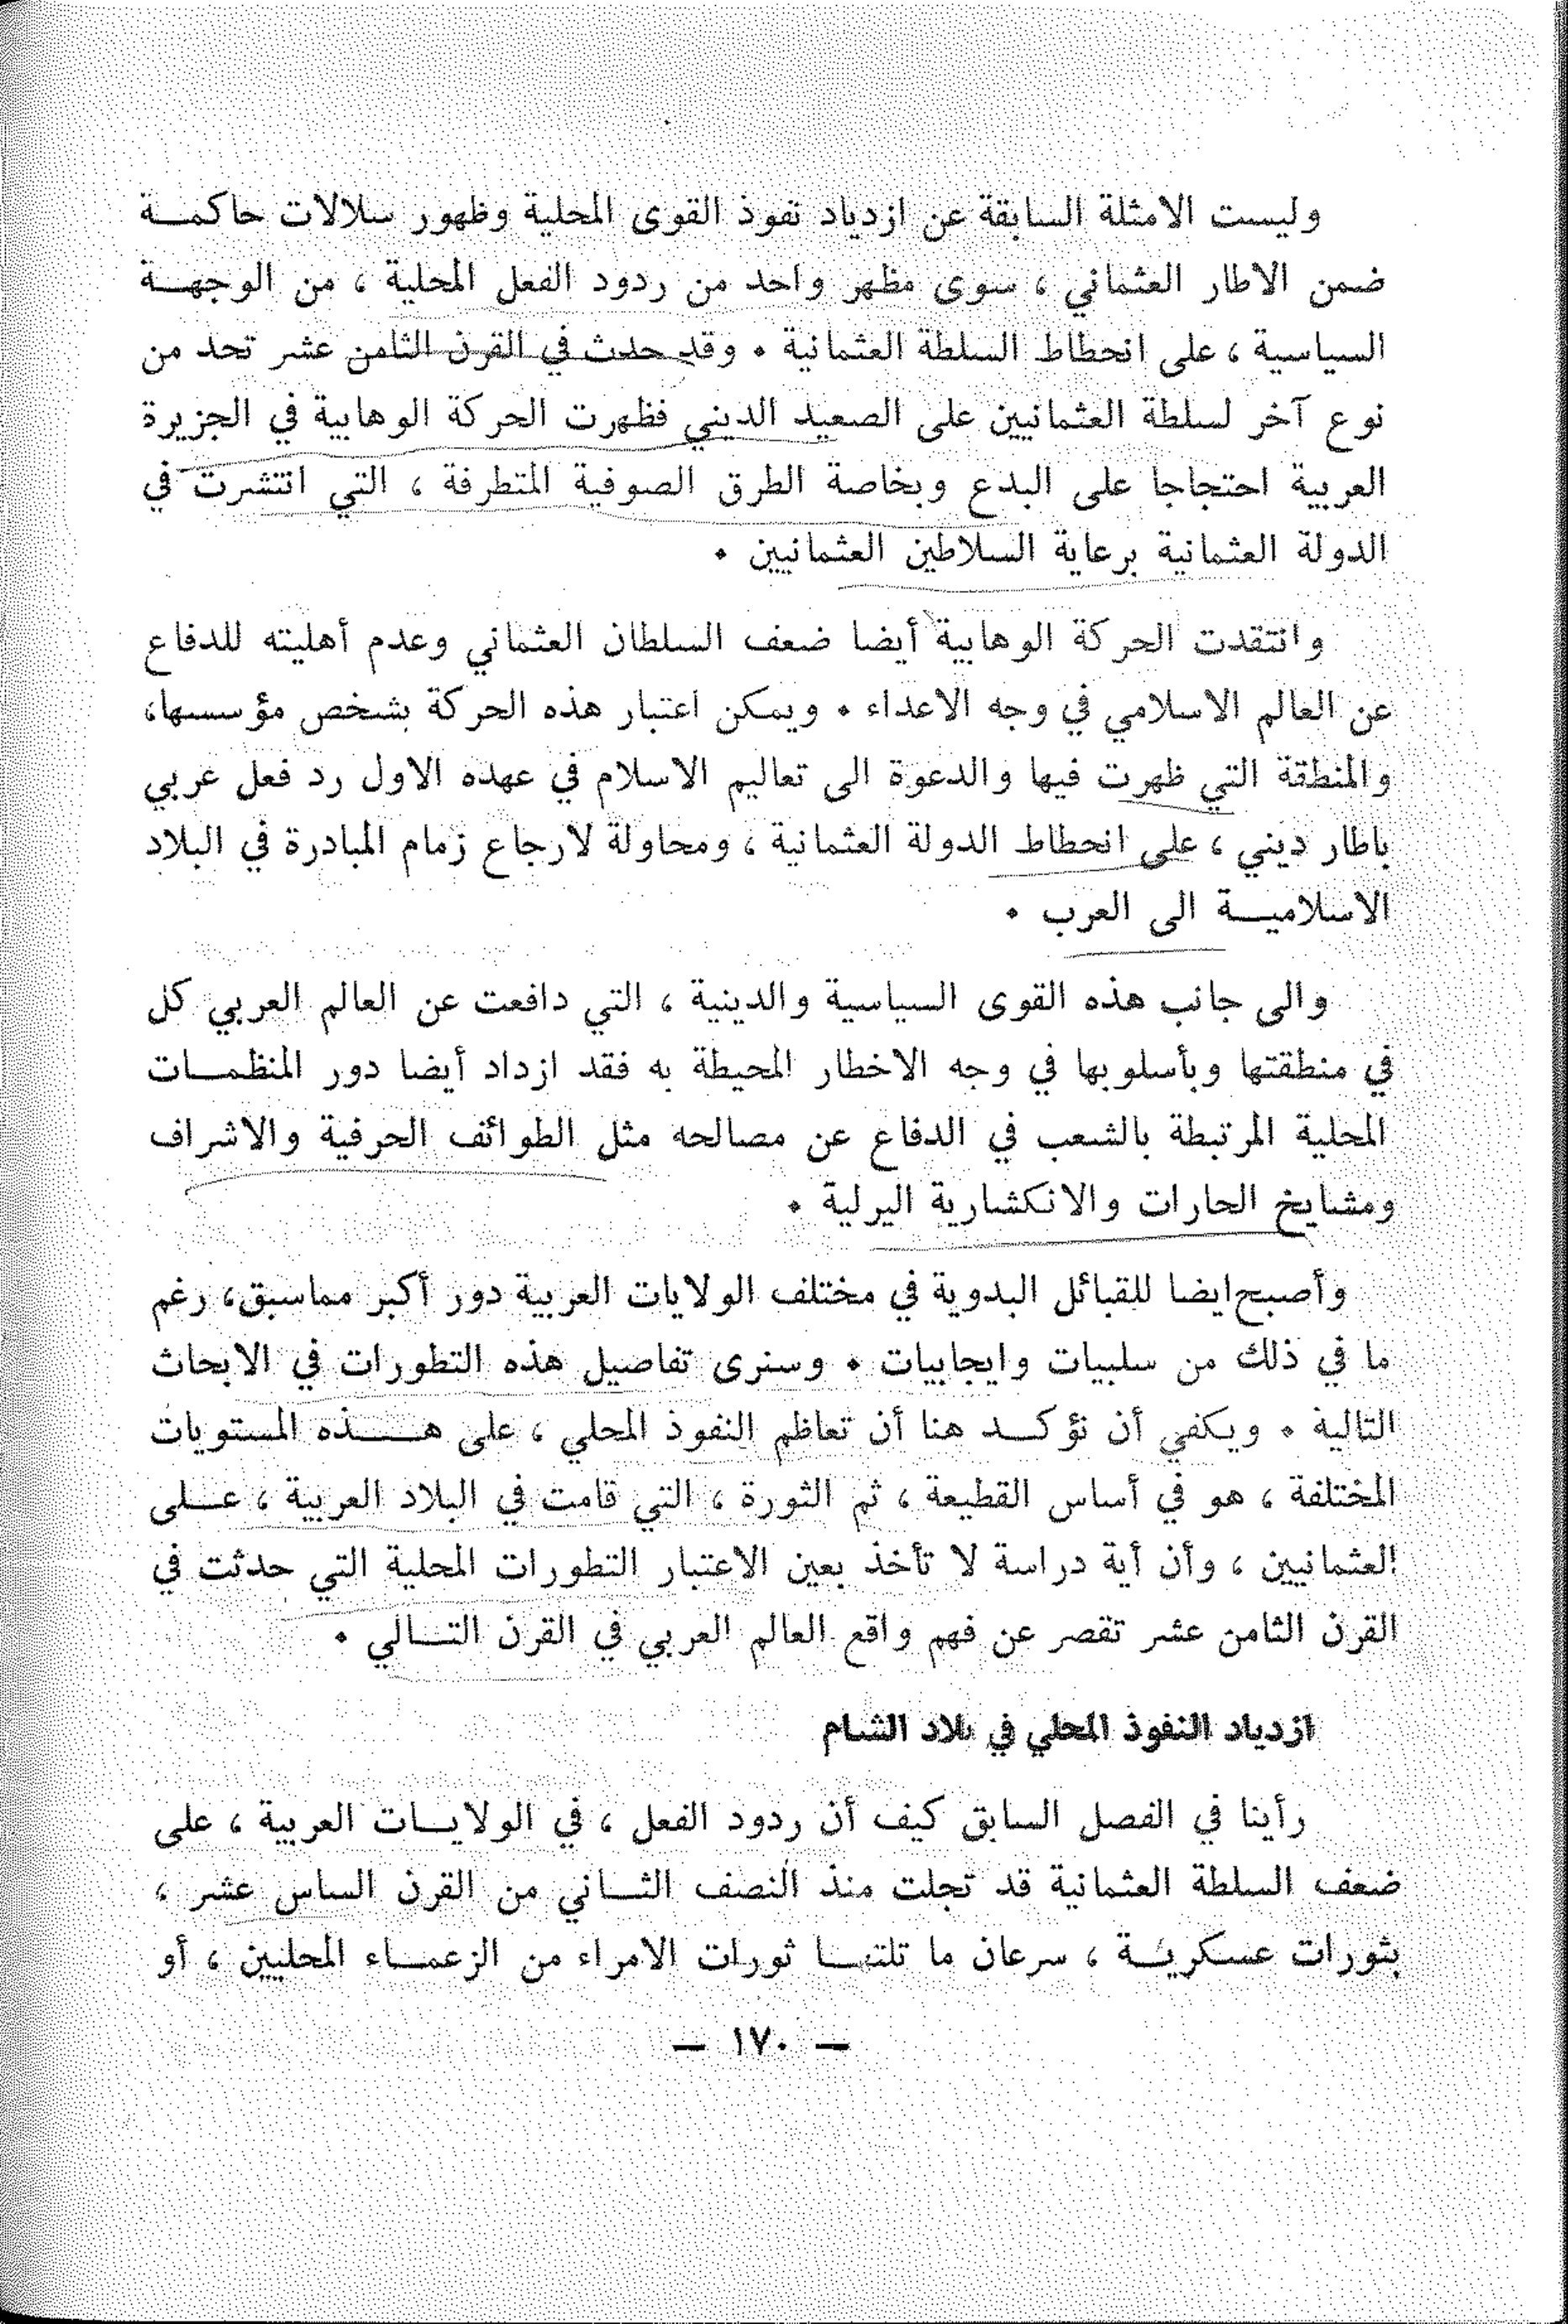 وليست الامثلة السابقة عن ازدياد نفوذ القوى المحلية وظهور سلالات حاكمـــة
ضمن الاطار العثماني ، سوى مظهر واحد من ردود الفعل المحلية ، من الوجهـــة
السياسية ، على انحطاط السلطة العثمانية • وقد حدث في القرن الثامن عشر تحد من
نوع آخر لسلطة العثمانيين على الصعيد الديني فظهرت الحركة الوهابية في الجزيرة
العربية احتجاجا على البدع وبخاصة الطرق الصوفية المتطرفة ، التي انتشرت في
الدولة العثمانية برعاية السلاطين العثمانيين •
وانتقدت الحركة الوهابية أيضا ضعف السلطان العثماني وعدم أهليته للدفاع
عن العالم الاسلامي في وجه الاعداء • ويمكن اعتبار هذه الحركة بشخص مؤسسها،
والمنطقة التي ظهرت فيها والدعوة الى تعاليم الاسلام في عهده الاول رد فعل عربي
باطار ديني ، على انحطاط الدولة العثمانية ، ومحاولة لارجاع زمام المبادرة في البلاد
الاسلاميـــة الى العرب •
والى جانب هذه القوى السياسية والدينية ، التي دافعت عن العالم العربي كل
في منطقتها وبأسلوبها في وجه الاخطار المحيطة به فقد ازداد أيضا دور المنظمـــات
المحلية المرتبطة بالشعب في الدفاع عن مصالحه مثل الطوائف الحرفية والاشراف
ومشايخ الحارات والانكشارية اليرلية •
وأصبح ايضا للقبائل البدوية في مختلف الولايات العربية دور أكبر مماسبق، رغم
ما في ذلك من سلبيات وايجابيات • وسنرى تفاصيل هذه التطورات في الابحاث
التالية • ويكفي أن نؤكـــد هنا أن تعاظم النفوذ المحلي ، على هـــــذه المستويات
المختلفة ، هو في أساس القطيعة ، ثم الثورة ، التي قامت في البلاد العربية ، عـــلى
العثمانيين ، وأن أية دراسة لا تأخذ بعين الاعتبار التطورات المحلية التي حدثت في
القرن الثامن عشر تقصر عن فهم واقع العالم العربي في القرن التـــالي •
ازدياد النفوذ المحلي في بلاد الشام
رأينا في الفصل السابق كيف أن ردود الفعل ، في الولايـــات العربية ، على
ضعف السلطة العثمانية قد تجلت منذ النصف الثـــاني من القرن الساس عشر ،
بثورات عسكريـــة ، سرعان ما تلتهـــا ثورات الامراء من الزعمـــاء المحليين ، أو
— ١٧٠ —